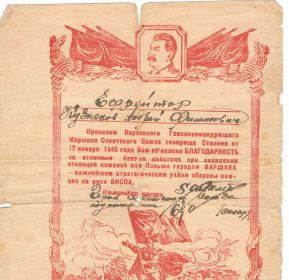 Ефрейтор
Кузнецов Андрей Филиппович
Приказом Верховного Главнокомандующего
Маршала Советского Союза товарища Сталина от
17 января 1945 года Вам объявлена БЛАГОДАРНОСТЬ
за отличные боевые действия при овладении
столицей союзной нам Польши городом ВАРШАВА
– важнейшим стратегическим узлом обороны немцев
на реке ВИСЛА.
Командир части
Герой Советского Союза